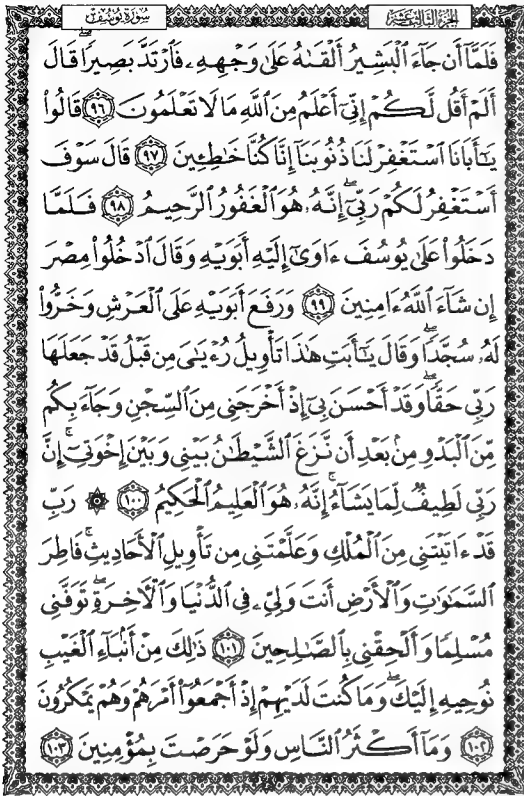 سورة يوسف
الجزء الثالث عشر
فَلَمَّآ أَن جَآءَ ٱلْبَشِيرُ أَلْقَىٰهُ عَلَىٰ وَجْهِهِۦ فَٱرْتَدَّ بَصِيرًاۖ قَالَ
أَلَمْ أَقُل لَّكُمْ إِنِّىٓ أَعْلَمُ مِنَ ٱللَّهِ مَا لَا تَعْلَمُونَ ٩٦ قَالُوا۟
يَـٰٓأَبَانَا ٱسْتَغْفِرْ لَنَا ذُنُوبَنَآ إِنَّا كُنَّا خَـٰطِـِٔينَ ٩٧ قَالَ سَوْفَ
أَسْتَغْفِرُ لَكُمْ رَبِّىٓۖ إِنَّهُۥ هُوَ ٱلْغَفُورُ ٱلرَّحِيمُ ٩٨ فَلَمَّا
دَخَلُوا۟ عَلَىٰ يُوسُفَ ءَاوَىٰٓ إِلَيْهِ أَبَوَيْهِ وَقَالَ ٱدْخُلُوا۟ مِصْرَ
إِن شَآءَ ٱللَّهُ ءَامِنِينَ ٩٩ وَرَفَعَ أَبَوَيْهِ عَلَى ٱلْعَرْشِ وَخَرُّوا۟
لَهُۥ سُجَّدًاۖ وَقَالَ يَـٰٓأَبَتِ هَـٰذَا تَأْوِيلُ رُءْيَـٰىَ مِن قَبْلُ قَدْ جَعَلَهَا
رَبِّى حَقًّاۖ وَقَدْ أَحْسَنَ بِىٓ إِذْ أَخْرَجَنِى مِنَ ٱلسِّجْنِ وَجَآءَ بِكُم
مِّنَ ٱلْبَدْوِ مِنۢ بَعْدِ أَن نَّزَغَ ٱلشَّيْطَـٰنُ بَيْنِى وَبَيْنَ إِخْوَتِىٓۚ إِنَّ
رَبِّى لَطِيفٌ لِّمَا يَشَآءُۚ إِنَّهُۥ هُوَ ٱلْعَلِيمُ ٱلْحَكِيمُ ١٠٠ ۞ رَبِّ
قَدْ ءَاتَيْتَنِى مِنَ ٱلْمُلْكِ وَعَلَّمْتَنِى مِن تَأْوِيلِ ٱلْأَحَادِيثِۚ فَاطِرَ
ٱلسَّمَـٰوَٰتِ وَٱلْأَرْضِ أَنتَ وَلِىِّۦ فِى ٱلدُّنْيَا وَٱلْـَٔاخِرَةِۖ تَوَفَّنِى
مُسْلِمًا وَأَلْحِقْنِى بِٱلصَّـٰلِحِينَ ١٠١ ذَٰلِكَ مِنْ أَنۢبَآءِ ٱلْغَيْبِ
نُوحِيهِ إِلَيْكَۖ وَمَا كُنتَ لَدَيْهِمْ إِذْ أَجْمَعُوٓا۟ أَمْرَهُمْ وَهُمْ يَمْكُرُونَ
١٠٢ وَمَآ أَكْثَرُ ٱلنَّاسِ وَلَوْ حَرَصْتَ بِمُؤْمِنِينَ ١٠٣